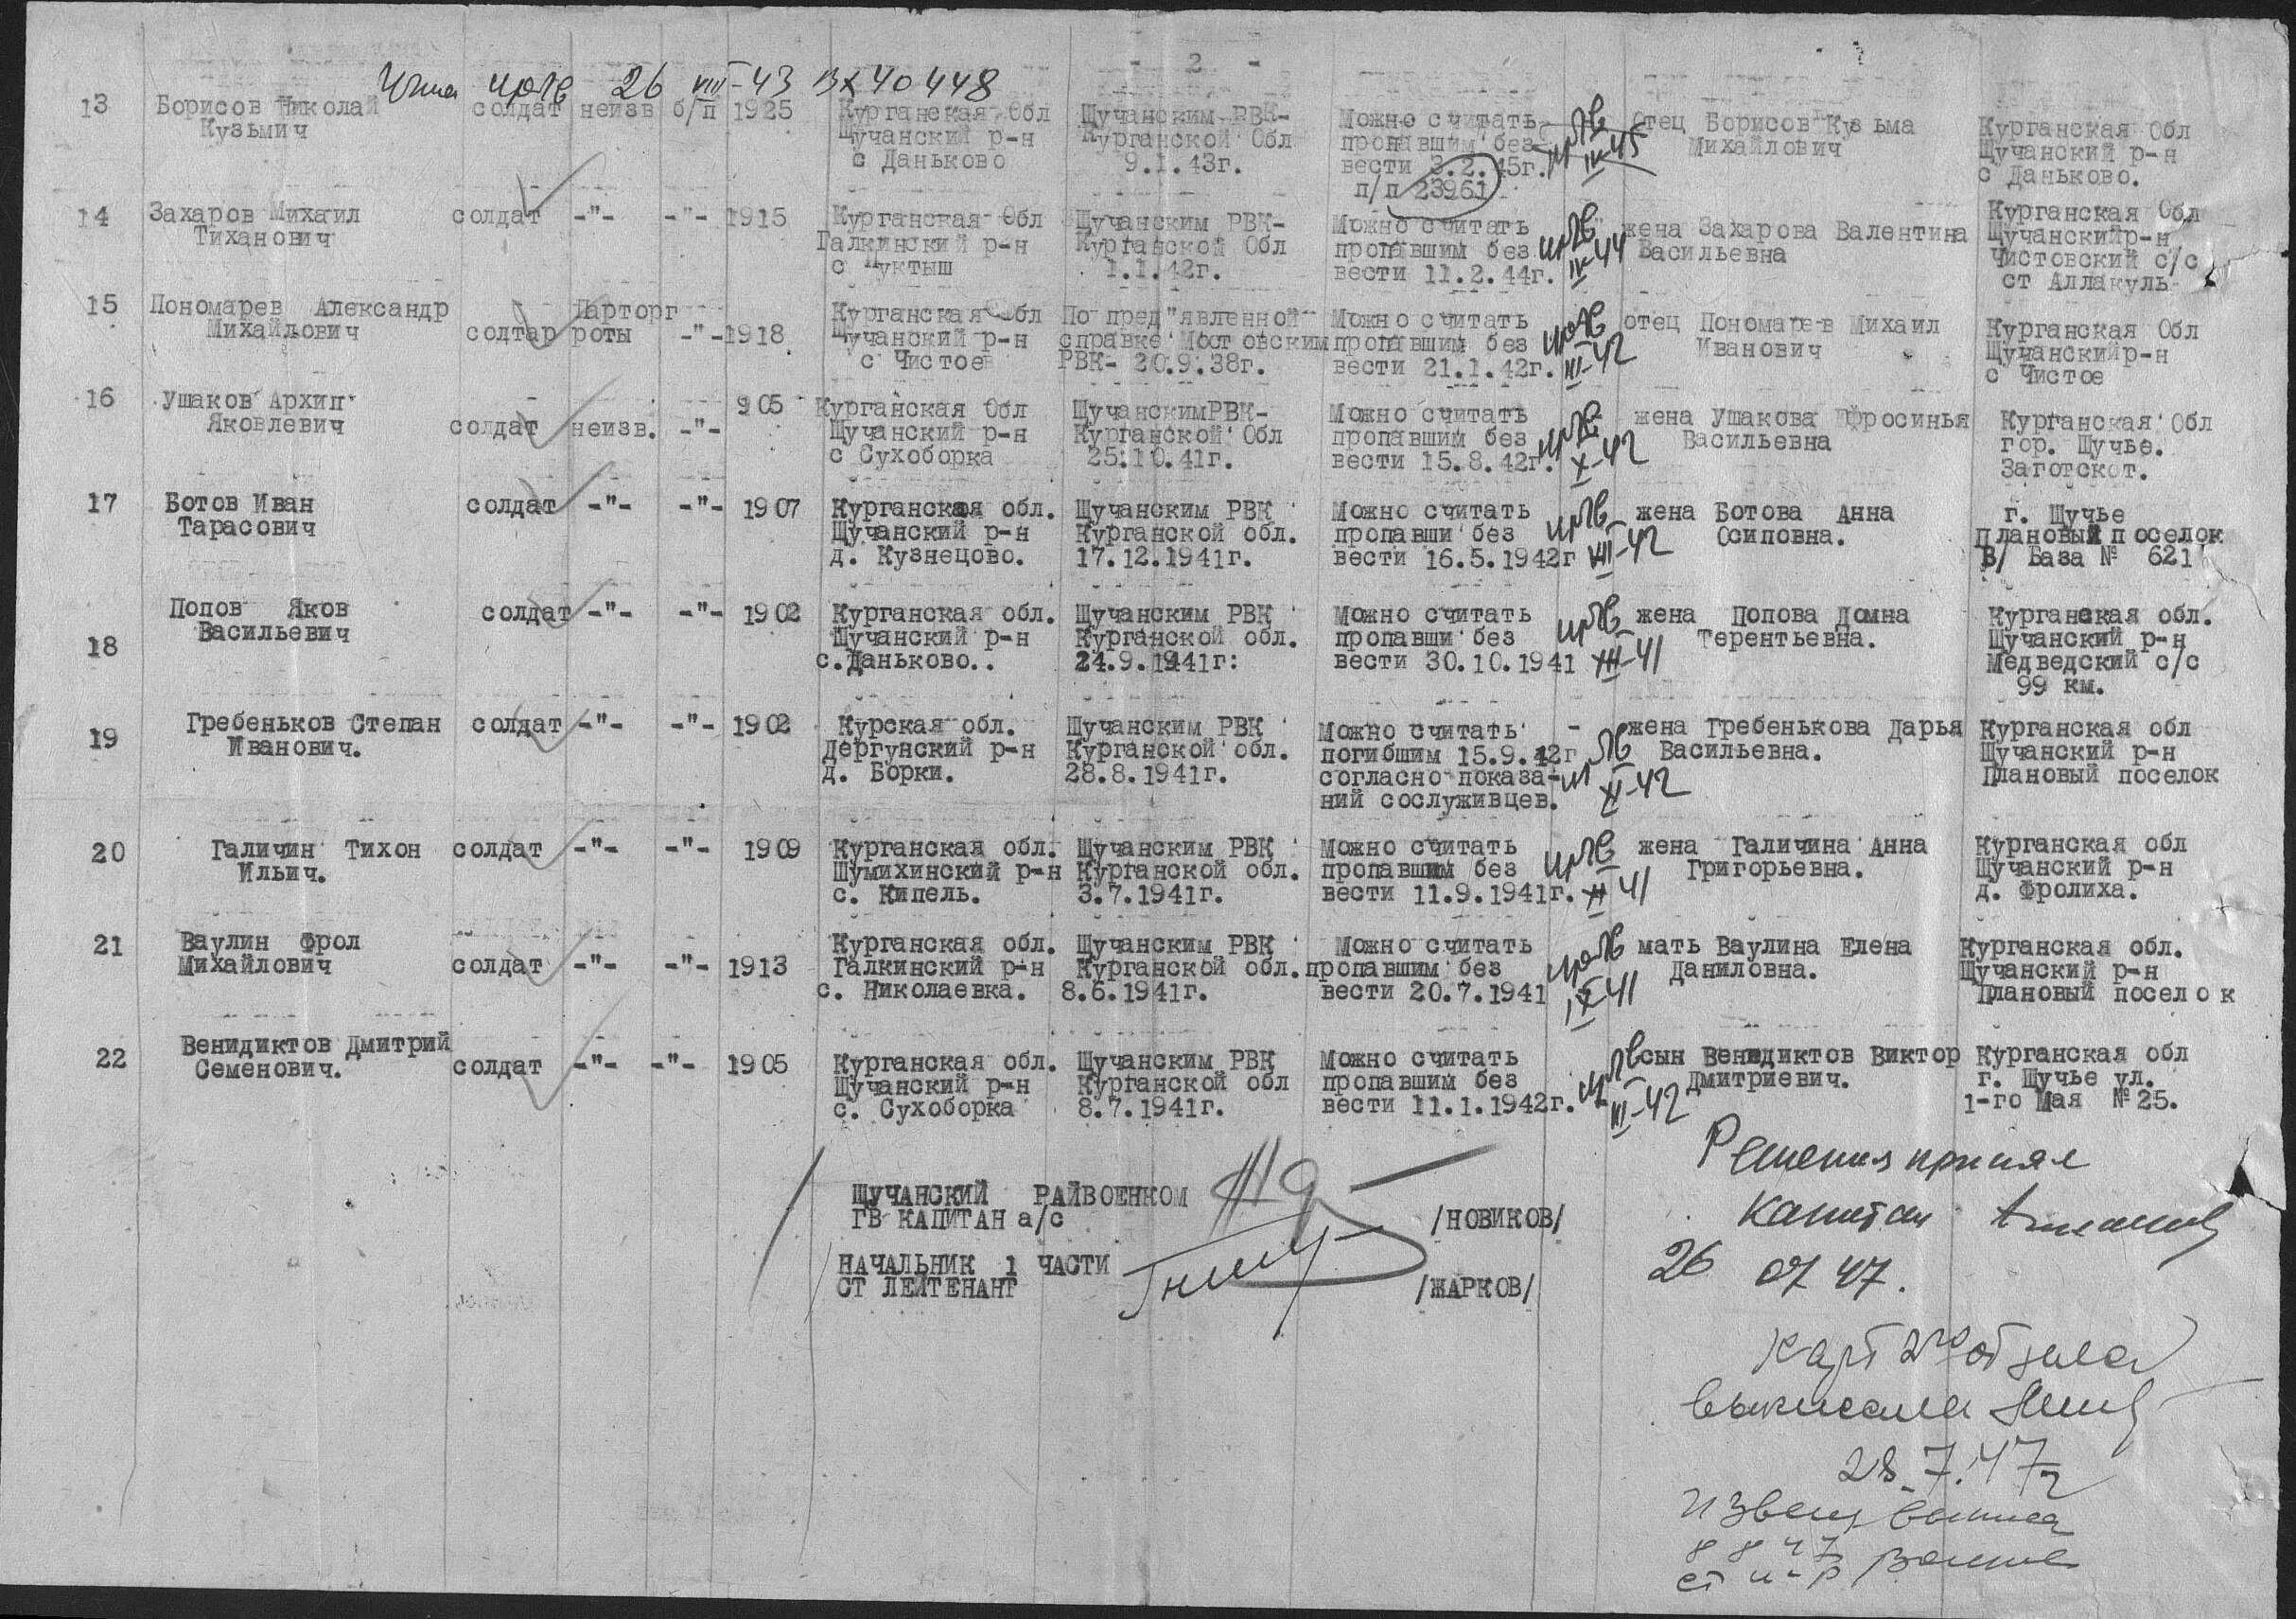 - 2 -
26 VIII-43 вх 40448
13 Борисов Николай солдат неизв б/п 1925 Курганская Обл Щучанским РВК- Можно считать Отец Борисов Кузьма Курганская Обл
Кузьмич Щучанский р-н Курганской Обл пропавшим без Михайлович Щучанский р-н
с Даньково 9.1.43г. вести 3.2.45г. IV-45 с Даньково.
п/п 23961
14 Захаров Михаил солдат -"- -"- 1915 Курганская Обл Щучанским РВК- Можно считать жена Захарова Валентина Курганская Обл
Тиханович Галкинский р-н Курганской Обл пропавшим без Васильевна Щучанскийр-н
с Пуктыш 1.1.42г. вести 11.2.44г. IV-44 Чистовский с/с
ст Аллакуль
15 Пономарев Александр Парторг Курганская Обл По пред"явленной Можно считать отец Пономарев Михаил Курганская Обл
Михайлович солтар роты -"- 1918 Щучанский р-н справке Мостовским пропавшим без Иванович Щучанскийр-н
с Чистое РВК- 20.9.38г. вести 21.1.42г. III-42 с Чистое
16 Ушаков Архип 905 Курганская Обл ЩучанскимРВК- Можно считать жена Ушакова Ефросинья Курганская Обл
Яковлевич солдат неизв. -"- Щучанский р-н Курганской Обл пропавшим без Васильевна гор. Щучье.
с Сухоборка 25.10.41г. вести 15.8.42г. X-42 Заготскот.
17 Ботов Иван солдат -"- -"- 1907 Курганская обл. Щучанским РВК Можно считать жена Ботова Анна г. Щучье
Тарасович Щучанский р-н Курганской обл. пропавши без Осиповна. Плановый поселок
д. Кузнецово. 17.12.1941г. вести 16.5.1942г VIII-42 В/ База № 621
Попов Яков солдат -"- -"- 1902 Курганская обл. Щучанским РВК Можно считать жена Попова Домна Курганская обл.
18 Васильевич Щучанский р-н Курганской обл. пропавши без Терентьевна. Щучанский р-н
с.Даньково.. 24.9.1941г: вести 30.10.1941 XII-41 Медведский с/с
99 км.
19 Гребеньков Степан солдат -"- -"- 1902 Курская обл. Щучанским РВК Можно считать - жена Гребенькова Дарья Курганская обл
Иванович. Дергунский р-н Курганской обл. погибшим 15.9.42г Васильевна. Щучанский р-н
д. Борки. 28.8.1941г. согласно показа- Плановый поселок
ний сослуживцев. XI-42
20 Галичин Тихон солдат -"- -"- 1909 Курганская обл. Щучанским РВК Можно считать жена Галичина Анна Курганская обл
Ильич. Шумихинский р-н Курганской обл. пропавшим без Григорьевна. Щучанский р-н
с. Кипель. 3.7.1941г. вести 11.9.1941г. XI 41 д. Фролиха.
21 Ваулин Фрол Курганская обл. Щучанским РВК Можно считать мать Ваулина Елена Курганская обл.
Михайлович солдат -"- -"- 1913 Галкинский р-н Курганской обл. пропавшим без Даниловна. Щучанский р-н
с. Николаевка. 8.6.1941г. вести 20.7.1941 IX-41 Плановый поселок
22 Венидиктов Дмитрий солдат -"- -"- 1905 Курганская обл. Щучанским РВК Можно считать сын Венидиктов Виктор Курганская обл
Семенович. Щучанский р-н Курганской обл пропавшим без Дмитриевич. г. Щучье ул.
с. Сухоборка 8.7.1941г. вести 11.1.1942г. III-42 1-го Мая №25.
Решения принял
ЩУЧАНСКИЙ РАЙВОЕНКОМ
ГВ КАПИТАН а/с /НОВИКОВ/
капитан
26 07 47.
НАЧАЛЬНИК 1 ЧАСТИ
СТ ЛЕЙТЕНАНТ /ЖАРКОВ/
Карт 2го отдела
выписала
28.7.47г
извещ
8 8 47